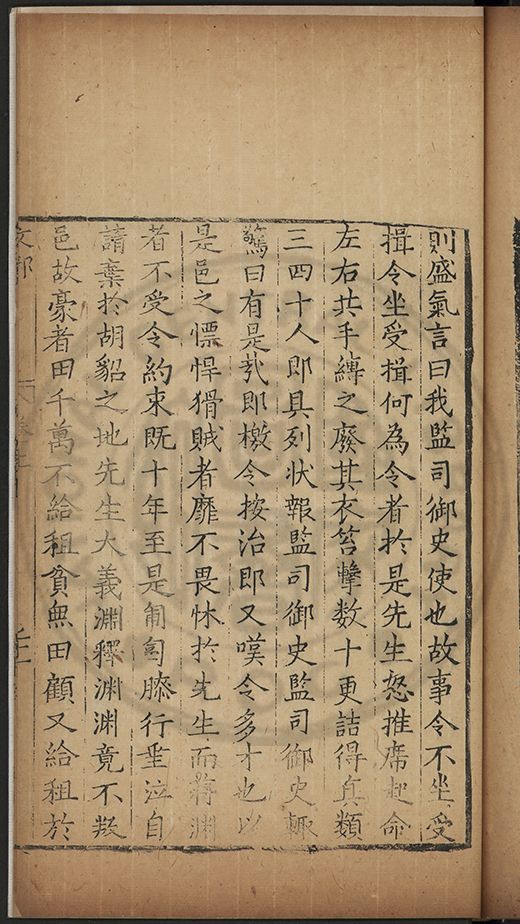 則盛氣言曰我監司御史使也故事令不坐受
揖令坐受揖何為令者於是先生怒推席起命
左右共手縛之廢其衣笞數十更詰得真類
三四十人即具列狀報監司御史監司御史輒
驚曰有是㢤即檄令按治即又嘆令多才也以
是邑之慓悍猾賊者靡不畏怵於先生而蔣淵
者不受令約束既十年至是匍匐膝行垂泣自
請棄於胡貂之地先生大義淵釋淵淵竟不叛
邑故豪者田千萬不給租貧無田顧又給租於